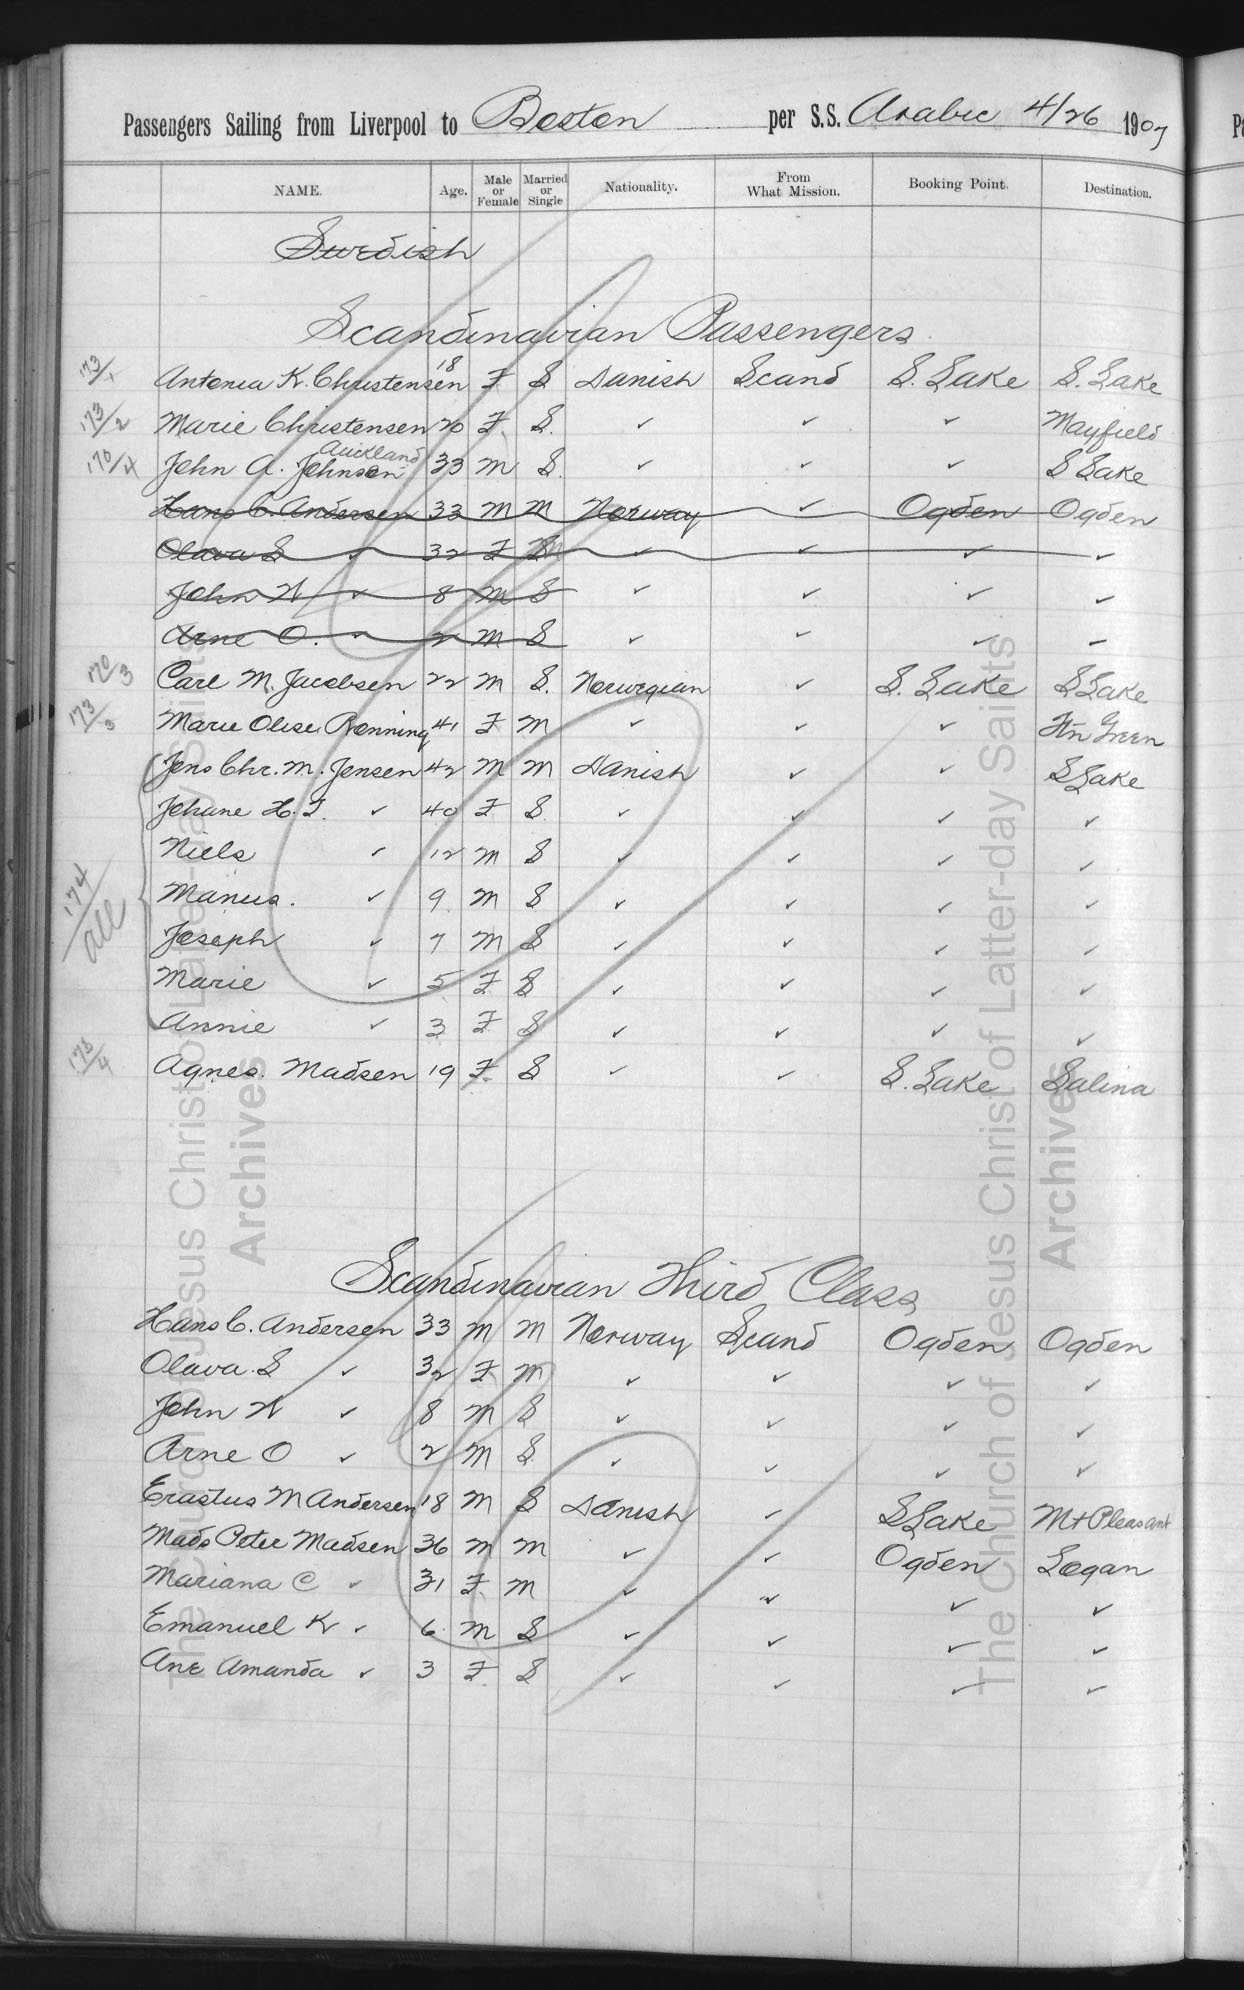 Passengers Sailing from Liverpool to Boston per S.S. Arabic 4/26 1907
NAME. Age. Male or Female Married or Single Nationality. From What Mission. Booking Point. Destination.
Swedish
Scandinavian Passengers
173/1 Antonia K. Christensen 18 F S Danish Scand S. Lake S. Lake
173/2 Marie Christensen 20 F. S. ✓ ✓ ✓ Mayfield
Auckland
170/4 John A. Johnson 33 M S. ✓ ✓ ✓ S Lake
Hans C. Andersen 33 M M Norway ✓ Ogden Ogden
Olava S ✓ 32 F M ✓ ✓ ✓ ✓
John W ✓ 8 M S ✓ ✓ ✓ ✓
Arne O. ✓ 2 M S ✓ ✓ ✓ ✓
170/3 Carl M. Jacobsen 22 M S. Norwegian ✓ S. Lake S Lake
173/3 Marie Olise Ronning 41 F M ✓ ✓ ✓ Ft'n Green
Jens Chr. M. Jensen 42 M M Danish ✓ ✓ S Lake
Johane H. J. ✓ 40 F S ✓ ✓ ✓ ✓
Niels ✓ 12 M S ✓ ✓ ✓ ✓
174 all Manus. ✓ 9 M S ✓ ✓ ✓ ✓
Joseph ✓ 7 M S ✓ ✓ ✓ ✓
Marie ✓ 5 F S ✓ ✓ ✓ ✓
Annie ✓ 3 F S ✓ ✓ ✓ ✓
173/4 Agnes. Madsen 19 F. S ✓ ✓ S. Lake Salina
Scandinavian Third Class
Hans C. Andersen 33 M M Norway Scand Ogden Ogden
Olava. S ✓ 32 F M ✓ ✓ ✓ ✓
John W ✓ 8 M S ✓ ✓ ✓ ✓
Arne O ✓ 2 M S ✓ ✓ ✓ ✓
Erastus M Andersen 18 M S Danish ✓ S Lake Mt Pleasant
Mads Peter Madsen 36 M M ✓ ✓ Ogden Logan
Mariana C ✓ 31 F M ✓ ✓ ✓ ✓
Emanuel K ✓ 6 M S ✓ ✓ ✓ ✓
Ane Amanda ✓ 3 F. S ✓ ✓ ✓ ✓
The Church of Jesus Christ of Latter-day Saints
Archives
The Church of Jesus Christ of Latter-day Saints
Archives